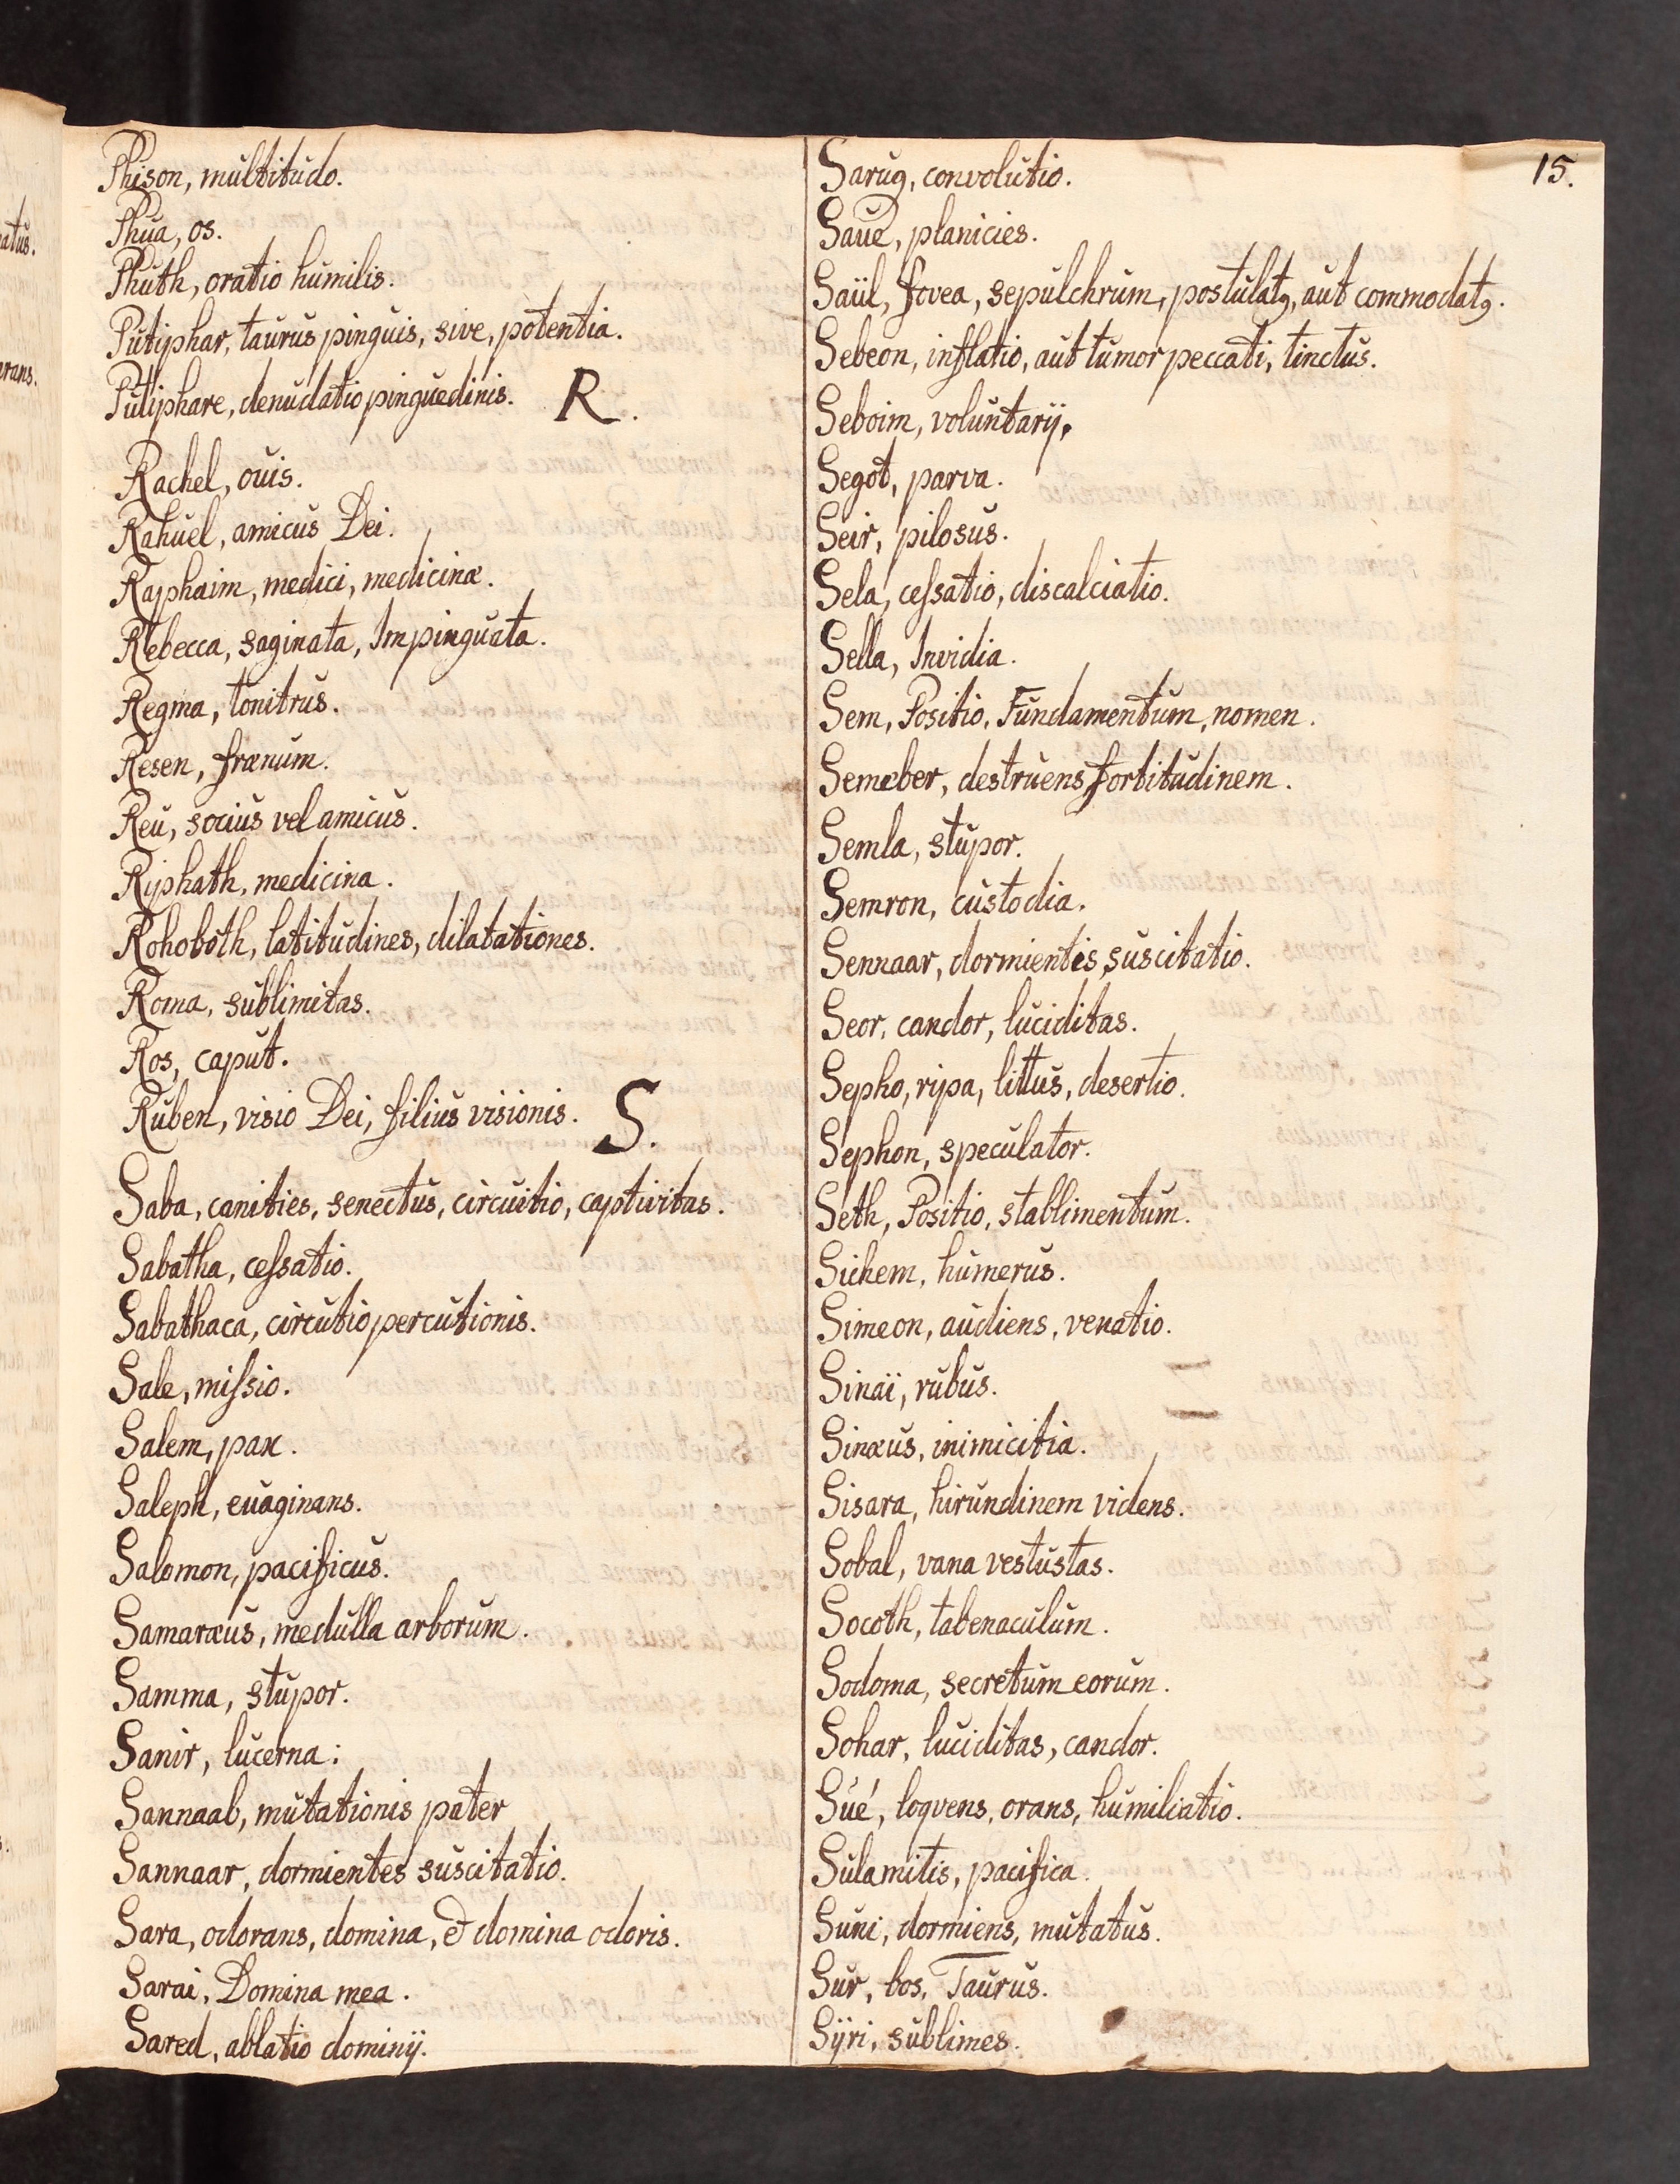 15.
Phison, multitudo.
Phua, os.
Phuth, oratio humilis.
Putiphar, taurus pinguis, sive, potentia.
Putiphare, denudatio pinguedinis.
R.
Rachel, ouis.
Rahuel, amicus Dei.
Raphaim, medici, medicinæ.
Rebecca, saginata, Impinguata.
Regma, tonitrus.
Resen, frænum.
Reu, socius vel amicus.
Riphath, medicina.
Rohoboth, latitudines, dilatationes.
Roma, sublimitas.
Ros, caput.
Ruben, visio Dei, filius visionis.
S.
Saba, canities, senectus, circuitio, captivitas.
Sabatha, ceſsatio.
Sabathaca, circutio percutionis.
Sale, miſsio.
Salem, pax.
Saleph, euaginans.
Salomon, pacificus.
Samaræus, medulla arborum.
Samma, stupor.
Sanir, lucerna:
Sannaab, mutationis pater
Sannaar, dormientes suscitatio.
Sara, odorans, domina, & domina odoris.
Sarai, Domina mea.
Sared, ablatio dominij.
Sarug, convolutio.
Saue, planicies.
Saül, fovea, sepulchrum, postulatꝯ, aut commodatꝯ.
Sebeon, inflatio, aut tumor peccati, tinctus.
Seboim, voluntarij.
Segot, parva.
Seir, pilosus.
Sela, ceſsatio, discalciatio.
Sella, Invidia.
Sem, Positio, Fundamentum, nomen.
Semeber, destruens fortitudinem.
Semla, stupor.
Semron, custodia.
Sennaar, dormientis suscitatio.
Seor, candor, luciditas.
Sepho, ripa, littus, desertio.
Sephon, speculator.
Seth, Positio, stablimentum.
Sichem, humerus.
Simeon, audiens, venatio.
Sinaï, rubus.
Sinæus, inimicitia.
Sisara, hirundinem videns.
Sobal, vana vestustas.
Socoth, tabenaculum.
Sodoma, secretum eorum.
Sohar, luciditas, candor.
Sué, loqvens, orans, humiliatio.
Sulamitis, pacifica.
Suni, dormiens, mutatus.
Sur, bos, Taurus.
Sÿri, sublimes.